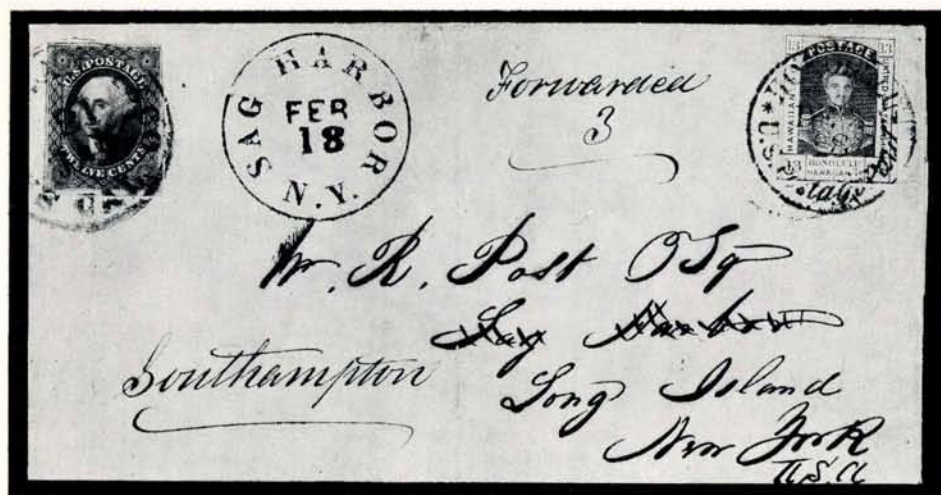 U.S. POSTAGE
TWELVE CENTS
SAG HARBOR
FEB
18
N.Y.
Forwarded
3
13 POSTAGE 13
HAWAIIAN
13 HONOLULU
HAWAIIAN
U.S. Postage Paid
W. R. Post Esq
Sag Harbor
Southampton
Long Island
New York
U.S.A